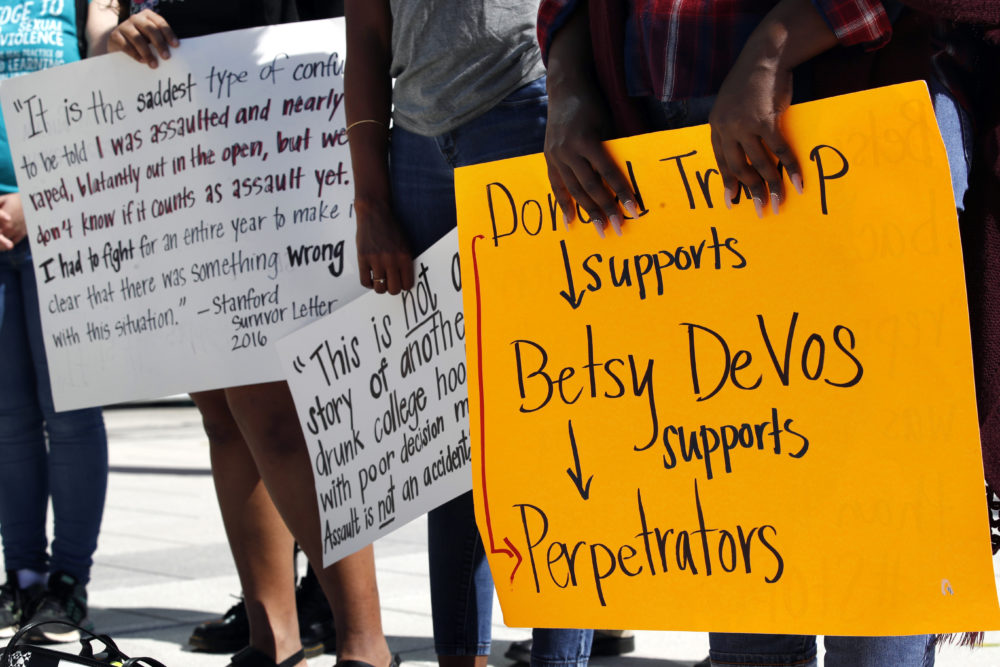 DGE TO
SEXUAL
VIOLENCE
"It is the saddest type of confu
to be told I was assaulted and nearly
raped, blatantly out in the open, but we
don't know if it counts as assault yet.
I had to fight for an entire year to make i
clear that there was something wrong
with this situation."
-Stanford
Survivor Letter
2016
"This is not a
story of anothe
drunk college hoo
with poor decision m
Assault is not an accident
Donald Trump
supports
Betsy DeVos
supports
Perpetrators